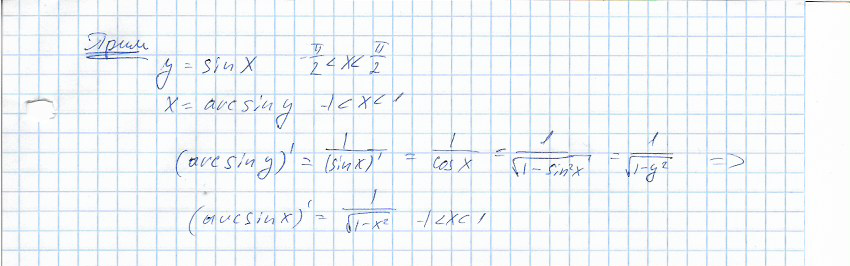 Прим
y = sin x -π/2 < x < π/2
x = arcsin y -1 < x < 1
(arcsin y)' = 1/(sin x)' = 1/cos x = 1/√(1-sin²x) = 1/√(1-y²) =>
(arcsin x)' = 1/√(1-x²) -1 < x < 1